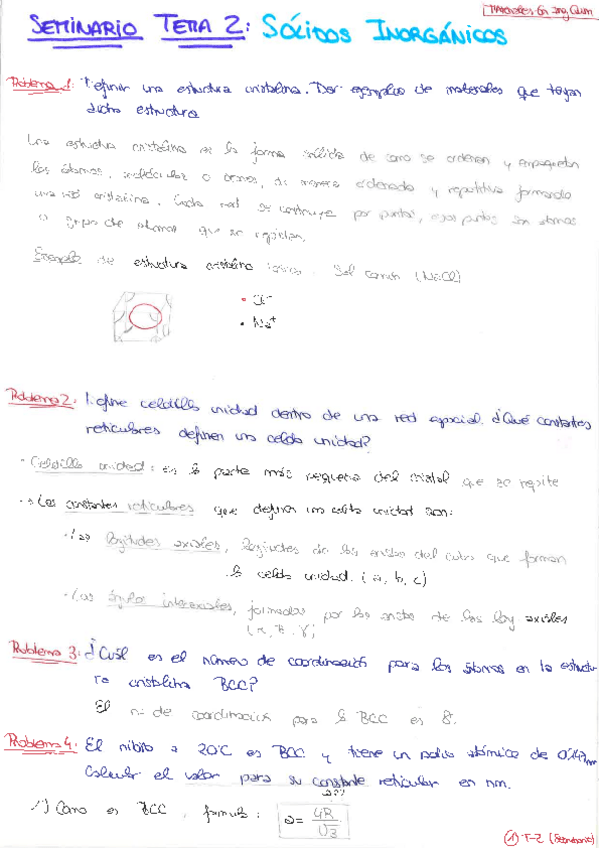 Materiales en Ing. Quím
SEMINARIO TEMA 2: SÓLIDOS INORGÁNICOS
Problema 1: Definir una estructura cristalina. Dar ejemplos de materiales que tengan
dicha estructura
Una estructura cristalina es la forma sólida de como se ordenan y empaquetan
los átomos, moléculas o iones, de manera ordenada y repetitiva formando
una red cristalina. Cada red se construye por puntos, esos puntos son átomos
o grupo de átomos que se repiten.
Ejemplo de estructura cristalina iónica. Sal común (NaCl)
• Cl⁻
• Na⁺
Problema 2: Define celdilla unidad dentro de una red espacial. ¿Qué constantes
reticulares definen una celda unidad?
· Celdilla unidad: es la parte más pequeña del cristal que se repite
· Las constantes reticulares que definen una celda unidad son:
· Las longitudes axiales, longitudes de las aristas del cubo que forman
la celda unidad. (a, b, c)
· Los ángulos interaxiales, formados por los de las axiales
Problema 3: ¿Cuál es el número de coordinación para los átomos en la estructu-
ra cristalina BCC?
El nº de coordinación para la BCC es 8.
Problema 4: El niobio a 20°C es BCC y tiene un radio atómico de 0'147nm
Calcular el valor para su constante reticular en nm.
Como es BCC, formula: a = 4R/√3
① T-2 (Seminario)